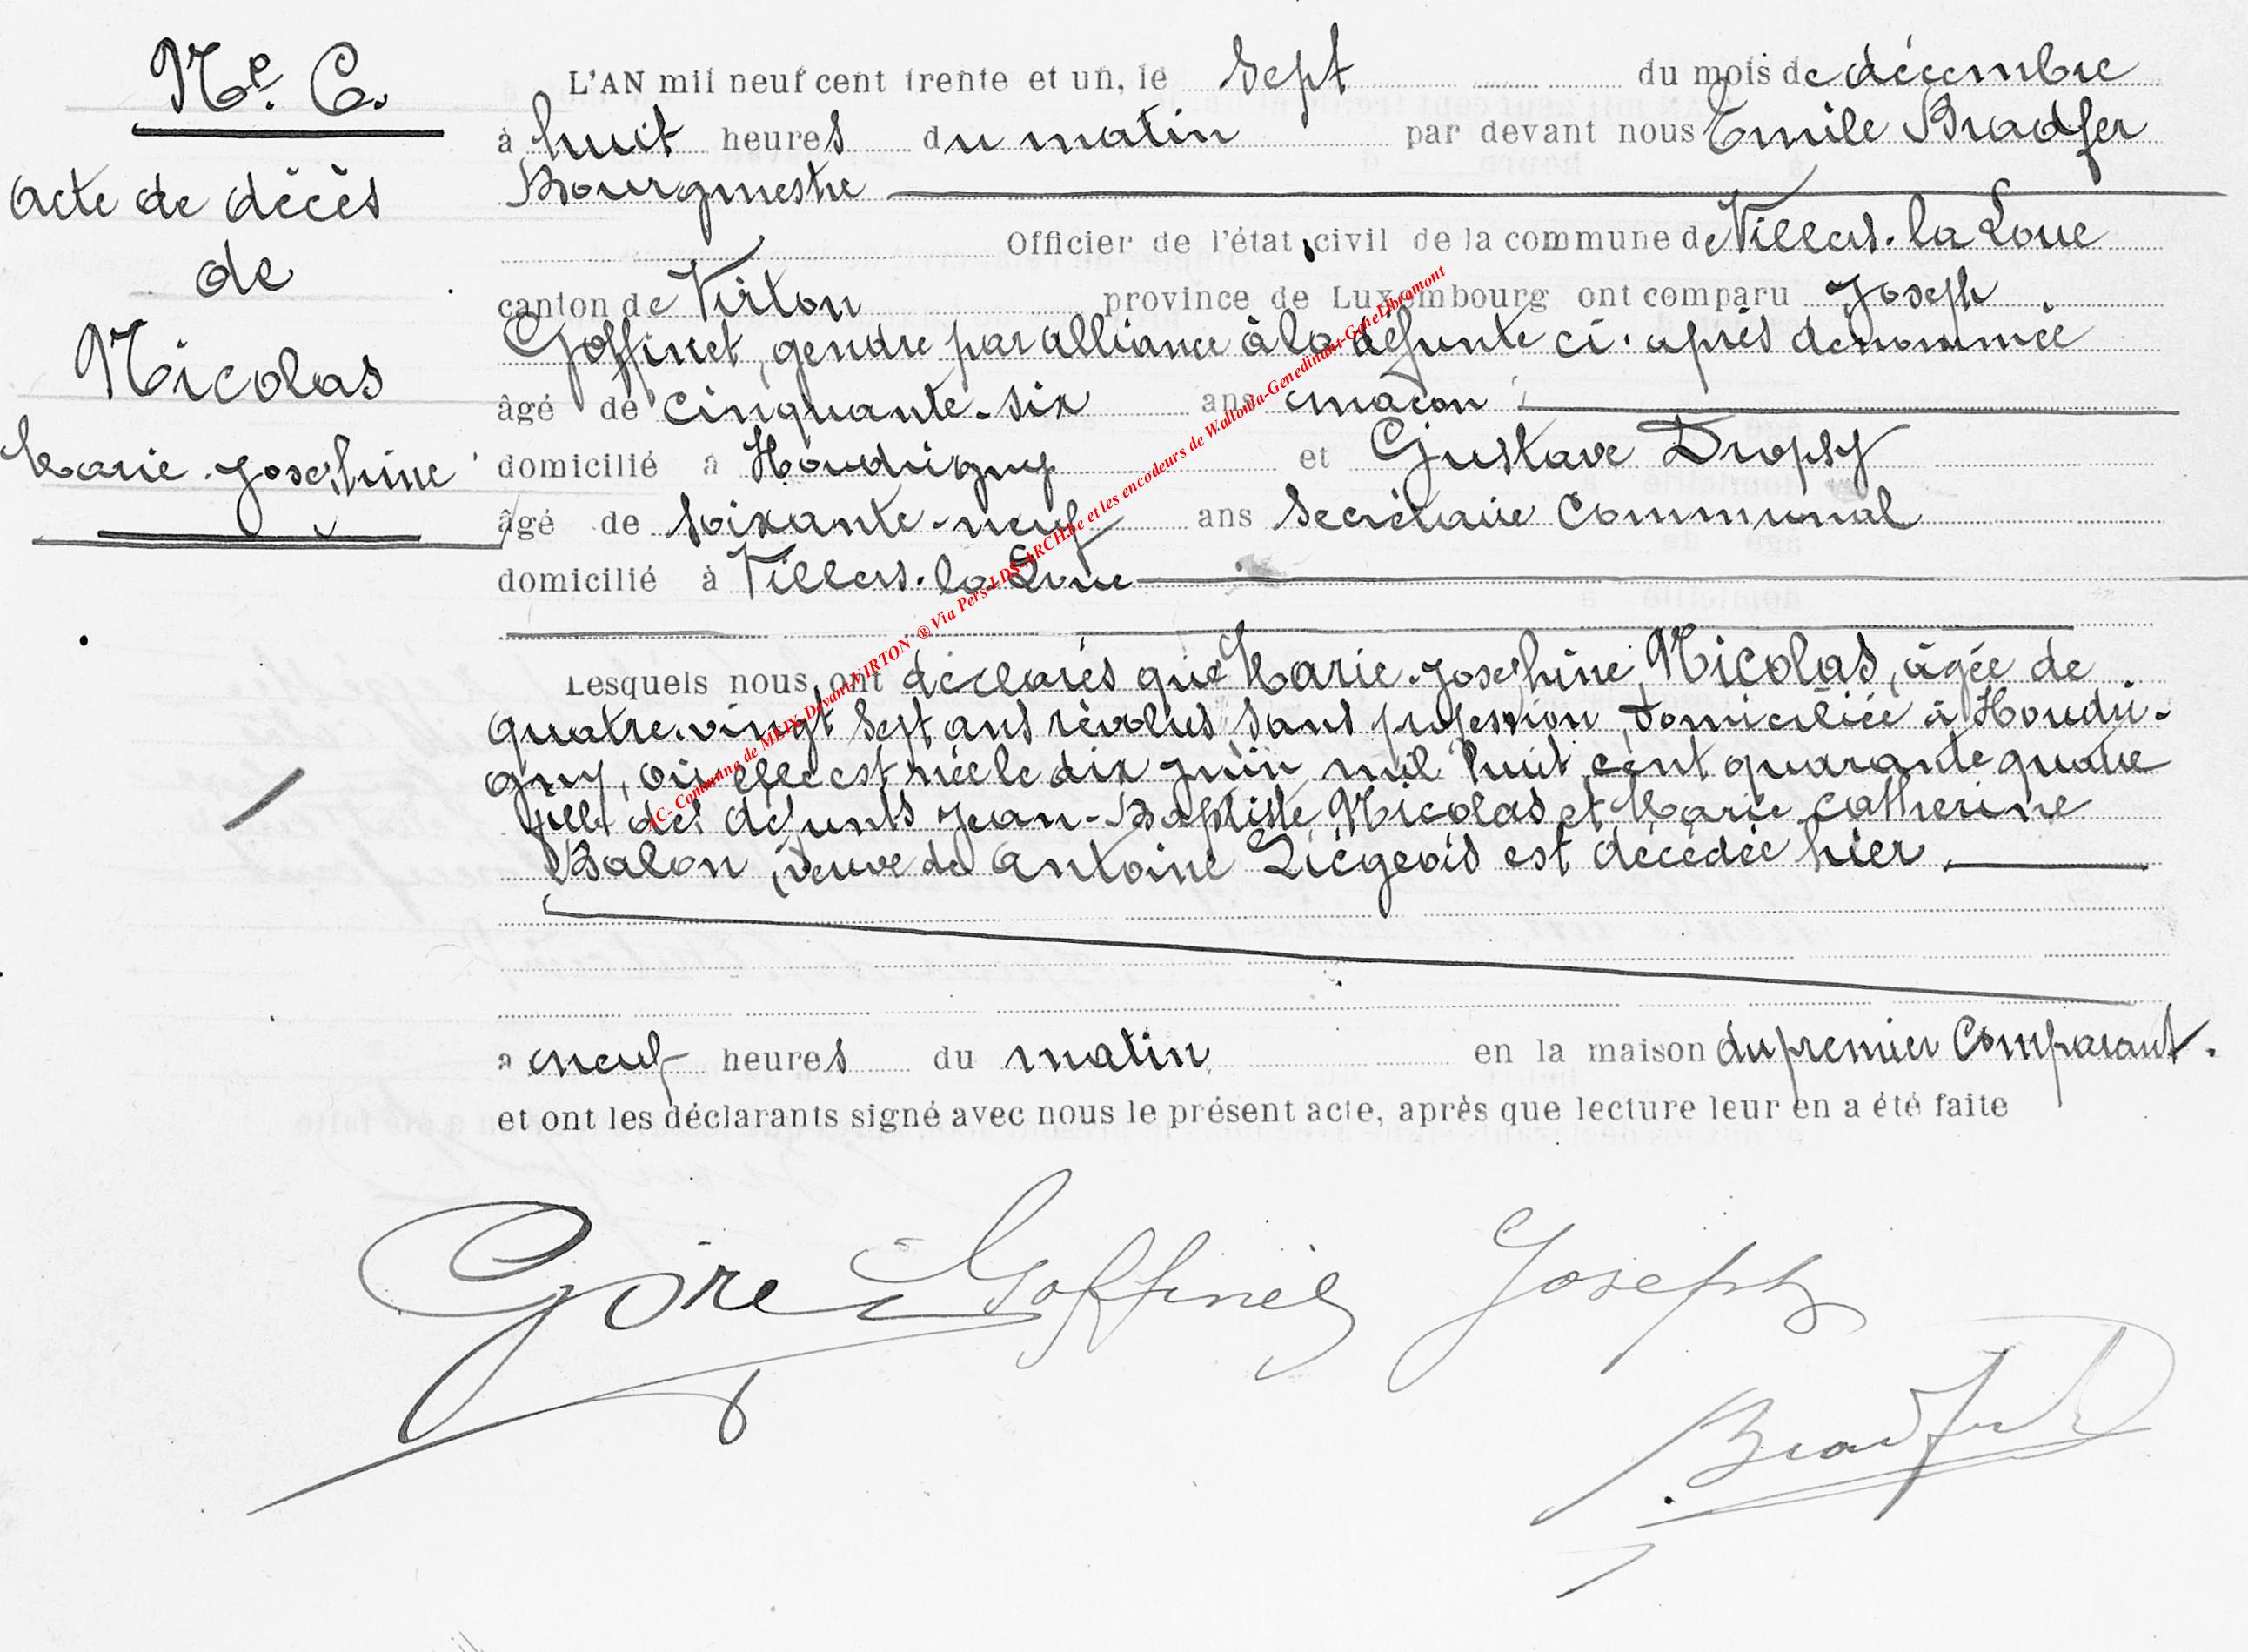 Nº 6.
Acte de décès
de
Nicolas
Marie-Josephine
L'AN mil neuf cent trente et un, le sept du mois de décembre
à huit heures du matin par devant nous Emile Bradfer
Bourgmestre
Officier de l'état civil de la commune de Villers-la-Loue
canton de Virton province de Luxembourg ont comparu Joseph
Goffinet, gendre par alliance à la défunte ci-après dénommée
âgé de cinquante-six ans maçon
domicilié à Houdrigny et Gustave Dropsy
âgé de soixante-neuf ans secrétaire communal
domicilié à Villers-la-Loue
Lesquels nous ont déclarés que Marie-Josephine Nicolas, âgée de
quatre-vingt sept ans révolus sans profession, domiciliée à Houdri-
gny, où elle est née le dix juin mil huit cent quarante quatre
fille des défunts Jean-Baptiste Nicolas et Marie Catherine
Balon, veuve de Antoine Liégeois est décédée hier.
à neuf heures du matin en la maison du premier comparant.
et ont les déclarants signé avec nous le présent acte, après que lecture leur en a été faite
Goffinet Joseph
Bradfer
AC- Commune de MEIX-Devant-VIRTON ® Via Pers-LDS-ARCH.be et les encodeurs de Wallonia-Genedinant-GeneLibramont